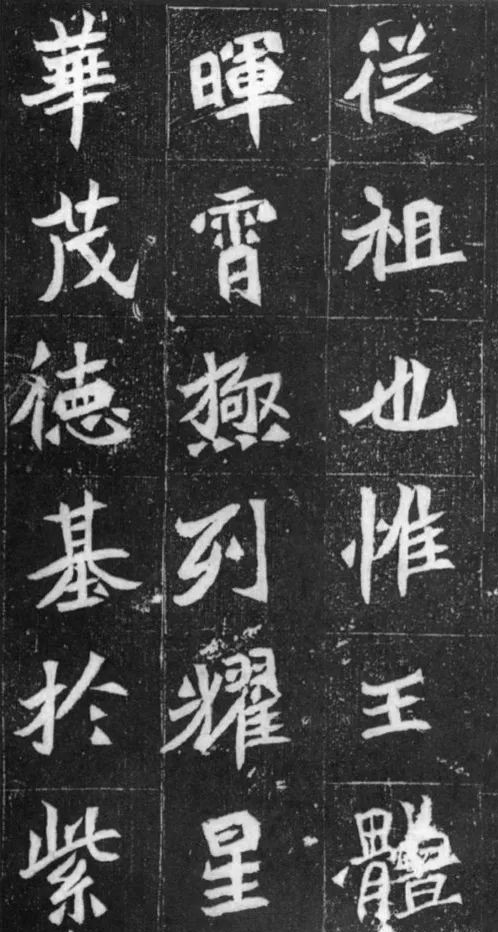 從祖也惟王體
暉霄極列耀星
華茂德基於紫